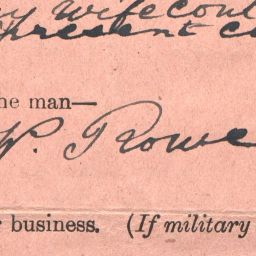 wife coul
present c
he man—
W. Rowe
business. (If military